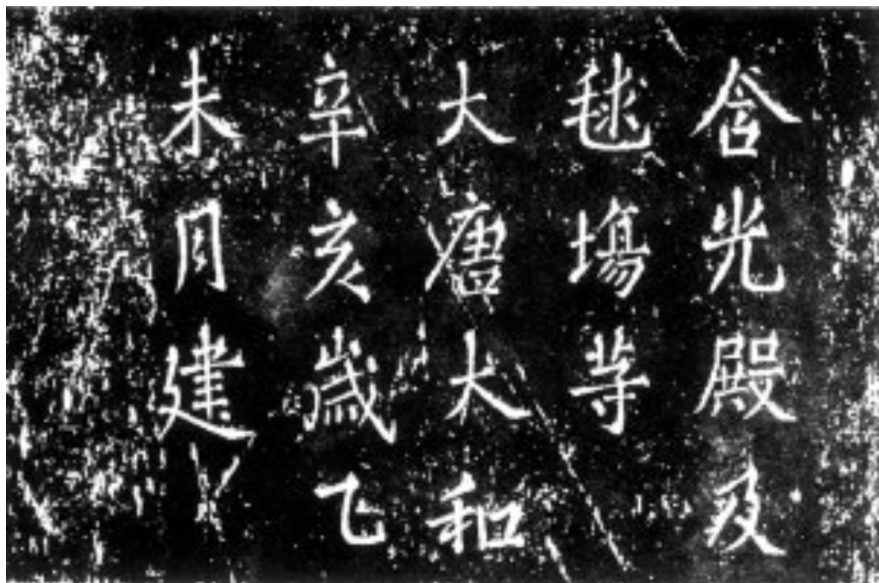 含光殿及
毬場等
大唐大和
辛亥歳乙
未月建